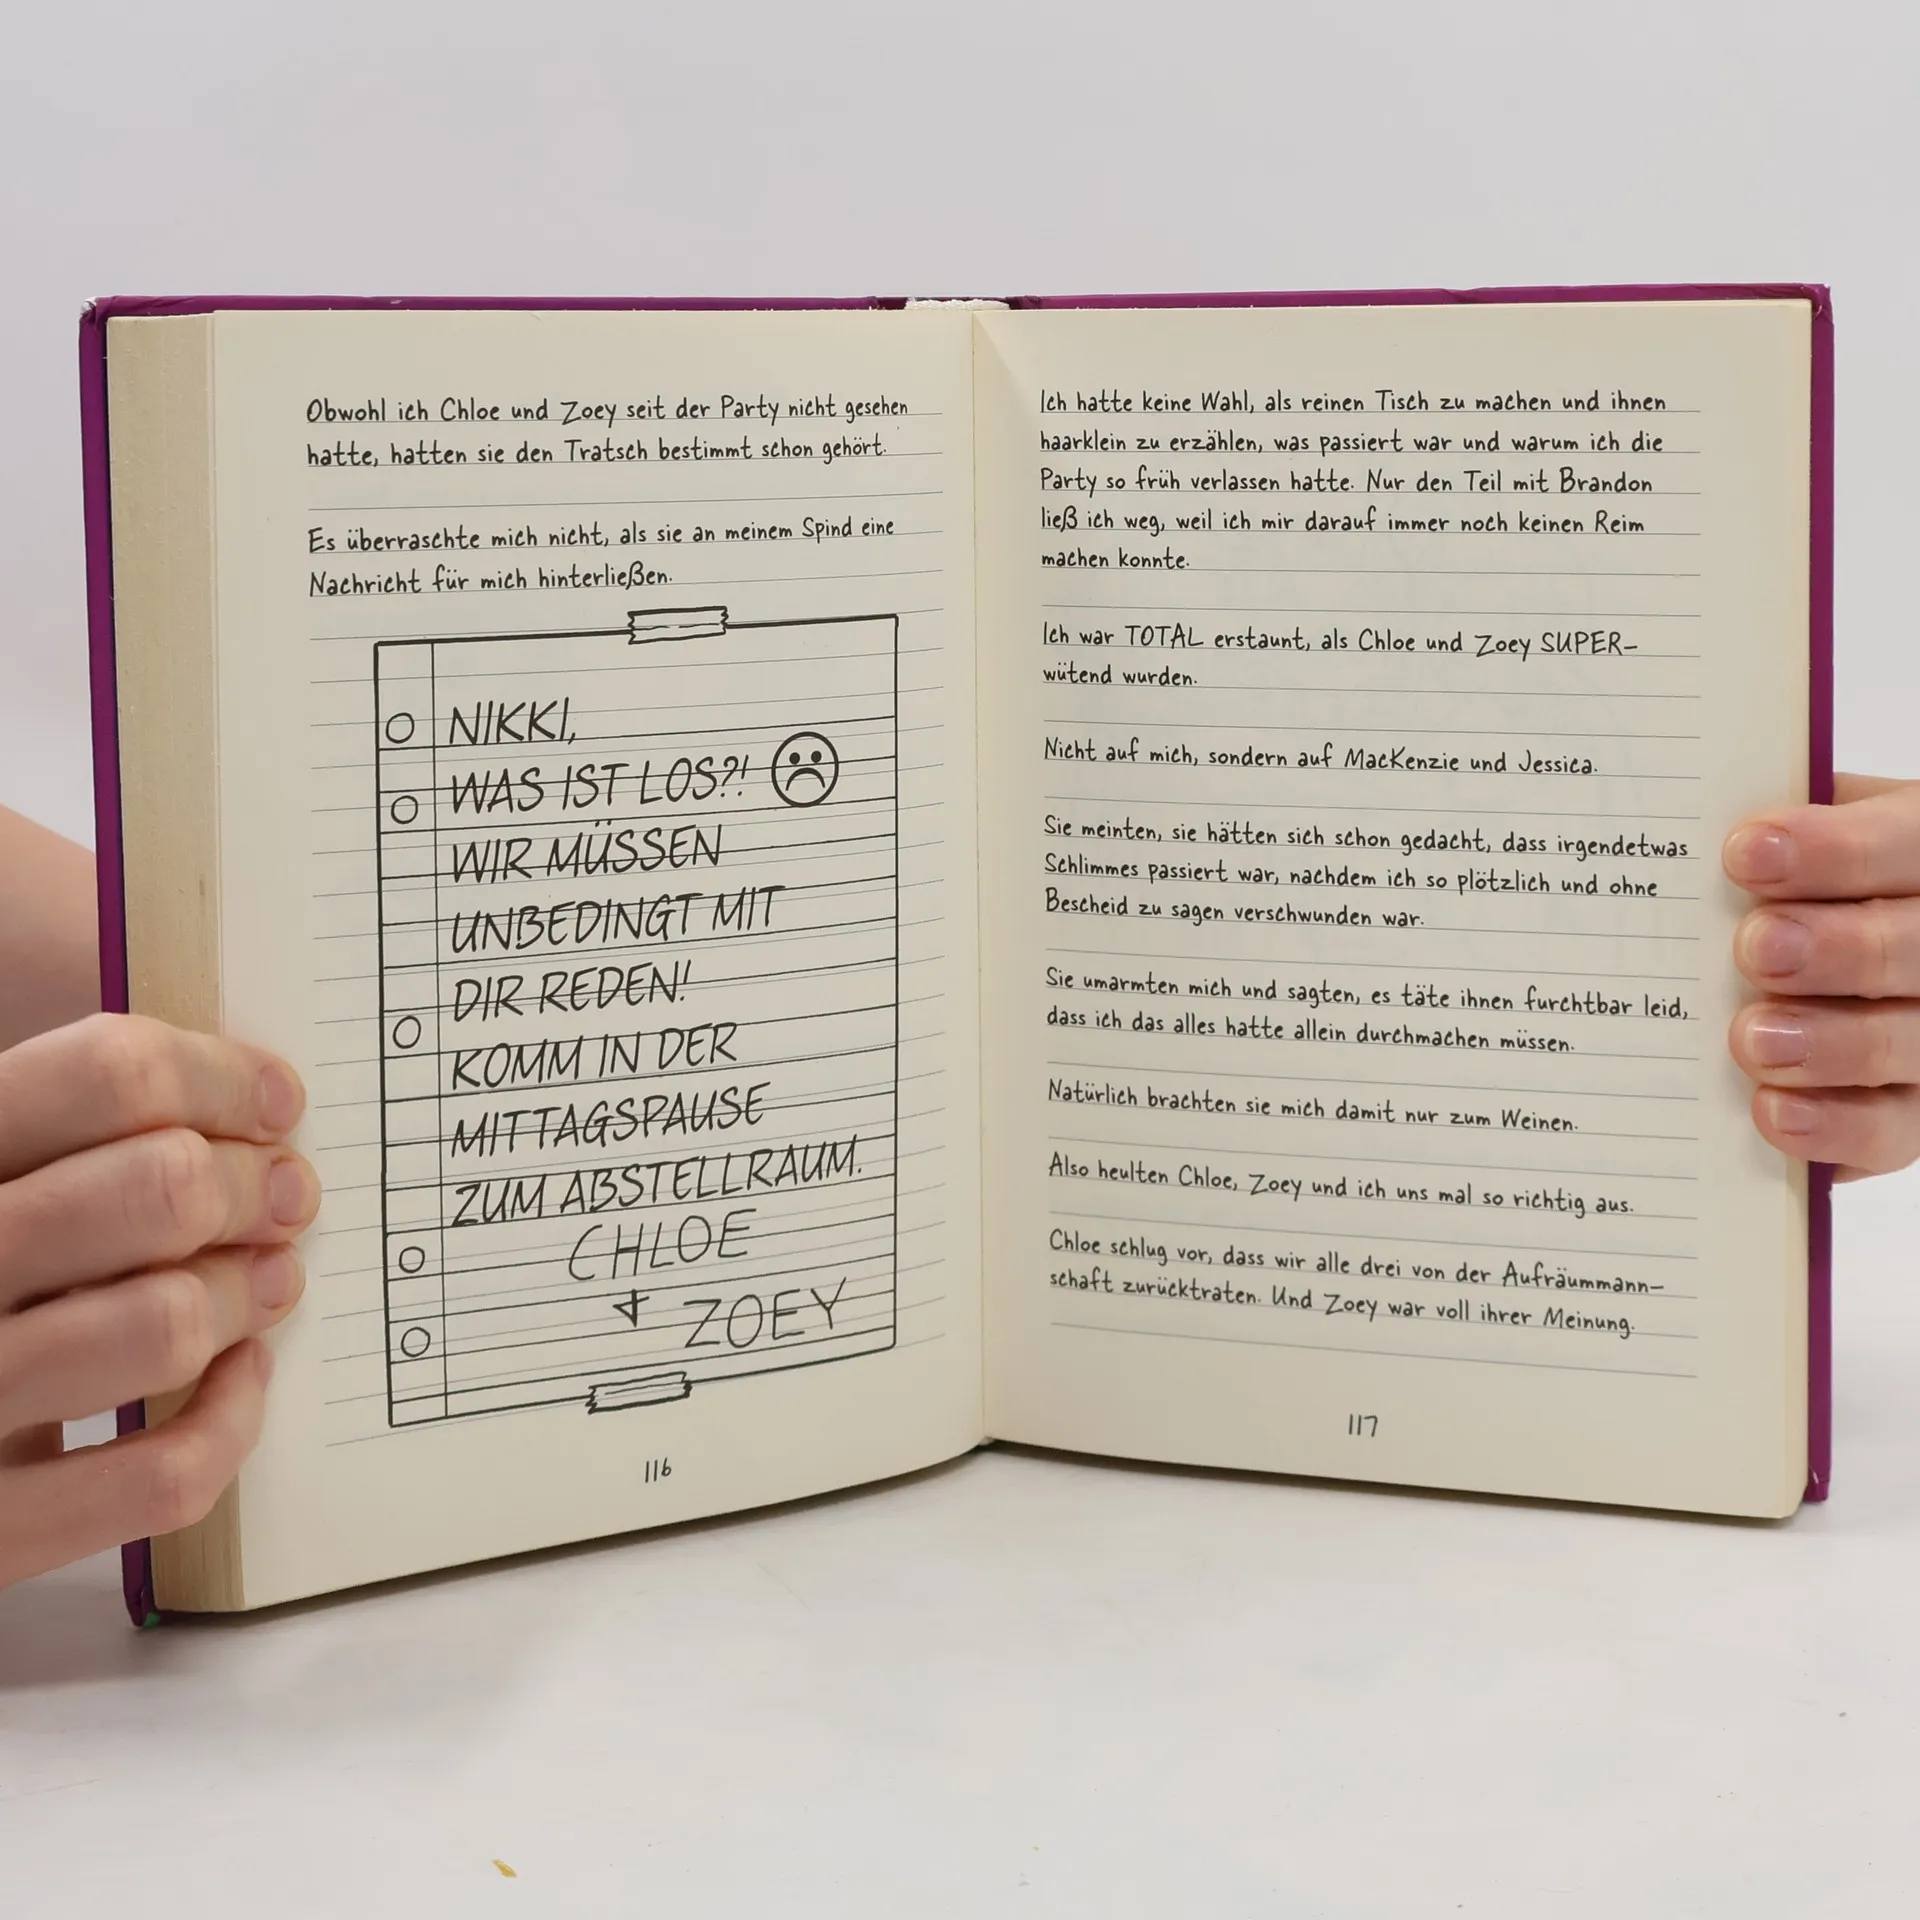 Obwohl ich Chloe und Zoey seit der Party nicht gesehen
hatte, hatten sie den Tratsch bestimmt schon gehört.
Es überraschte mich nicht, als sie an meinem Spind eine
Nachricht für mich hinterließen.
NIKKI,
WAS IST LOS?!
WIR MÜSSEN
UNBEDINGT MIT
DIR REDEN!
KOMM IN DER
MITTAGSPAUSE
ZUM ABSTELLRAUM.
CHLOE
+ ZOEY
116
Ich hatte keine Wahl, als reinen Tisch zu machen und ihnen
haarklein zu erzählen, was passiert war und warum ich die
Party so früh verlassen hatte. Nur den Teil mit Brandon
ließ ich weg, weil ich mir darauf immer noch keinen Reim
machen konnte.
Ich war TOTAL erstaunt, als Chloe und Zoey SUPER-
wütend wurden.
Nicht auf mich, sondern auf MacKenzie und Jessica.
Sie meinten, sie hätten sich schon gedacht, dass irgendetwas
Schlimmes passiert war, nachdem ich so plötzlich und ohne
Bescheid zu sagen verschwunden war.
Sie umarmten mich und sagten, es täte ihnen furchtbar leid,
dass ich das alles hatte allein durchmachen müssen.
Natürlich brachten sie mich damit nur zum Weinen.
Also heulten Chloe, Zoey und ich uns mal so richtig aus.
Chloe schlug vor, dass wir alle drei von der Aufräummann-
schaft zurücktraten. Und Zoey war voll ihrer Meinung.
117